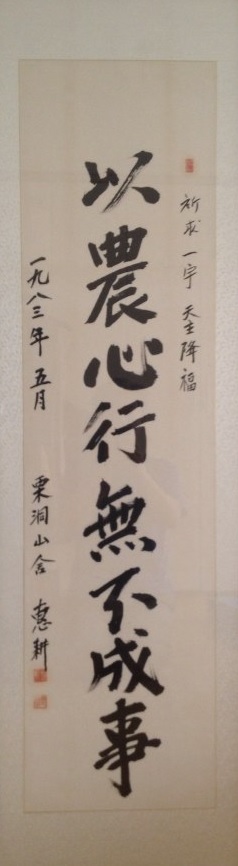 祈求 一宇 天主降福
以農心行無不成事
一九八三年 五月 栗洞山舍 惠耕